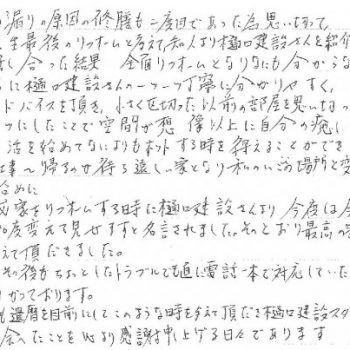 漏りの原因の修繕も二度目であった為思いきって
最後のリフォームと考えて知人より樋口建設さんを紹介
し合った結果 全届リフォームとなりなにも分からな
に樋口建設さんの一つ一つ丁寧に分かりやすく、
ドバイスを頂き、小さく区切った以前の部屋を思いきっ
つにしたことで空間が想像以上に自分の癒し
活を始めてなによりもホットする時を得ることができ
事〜帰るのが待ち遠しい家となり私のいこの場所と変
始めに
家をリフォームする時に樋口建設さんより今度は
度変えて見せますと名言されました。そのとおり最高の
えて頂きました。
その後もちょとしたトラブルでも直に電話一本で対応していた
かっております。
還暦を目前にしてこのような時を与えて頂だき樋口建設スタ
会ったことを心より感謝申し上げる日々であります